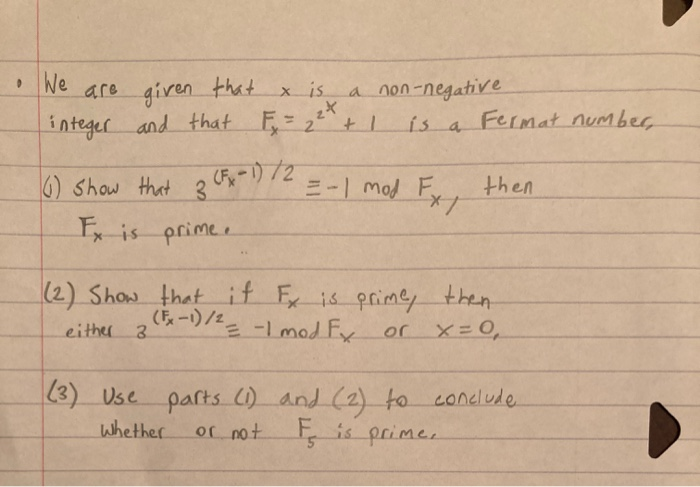 • We are given that x is a non-negative
integer and that Fₓ = 2^2^x + 1 is a Fermat number.
(1) Show that 3^(Fₓ-1)/2 ≡ -1 mod Fₓ, then
Fₓ is prime.
(2) Show that if Fₓ is prime, then
either 3^(Fₓ-1)/2 ≡ -1 mod Fₓ or x = 0.
(3) Use parts (1) and (2) to conclude
whether or not F₅ is prime.